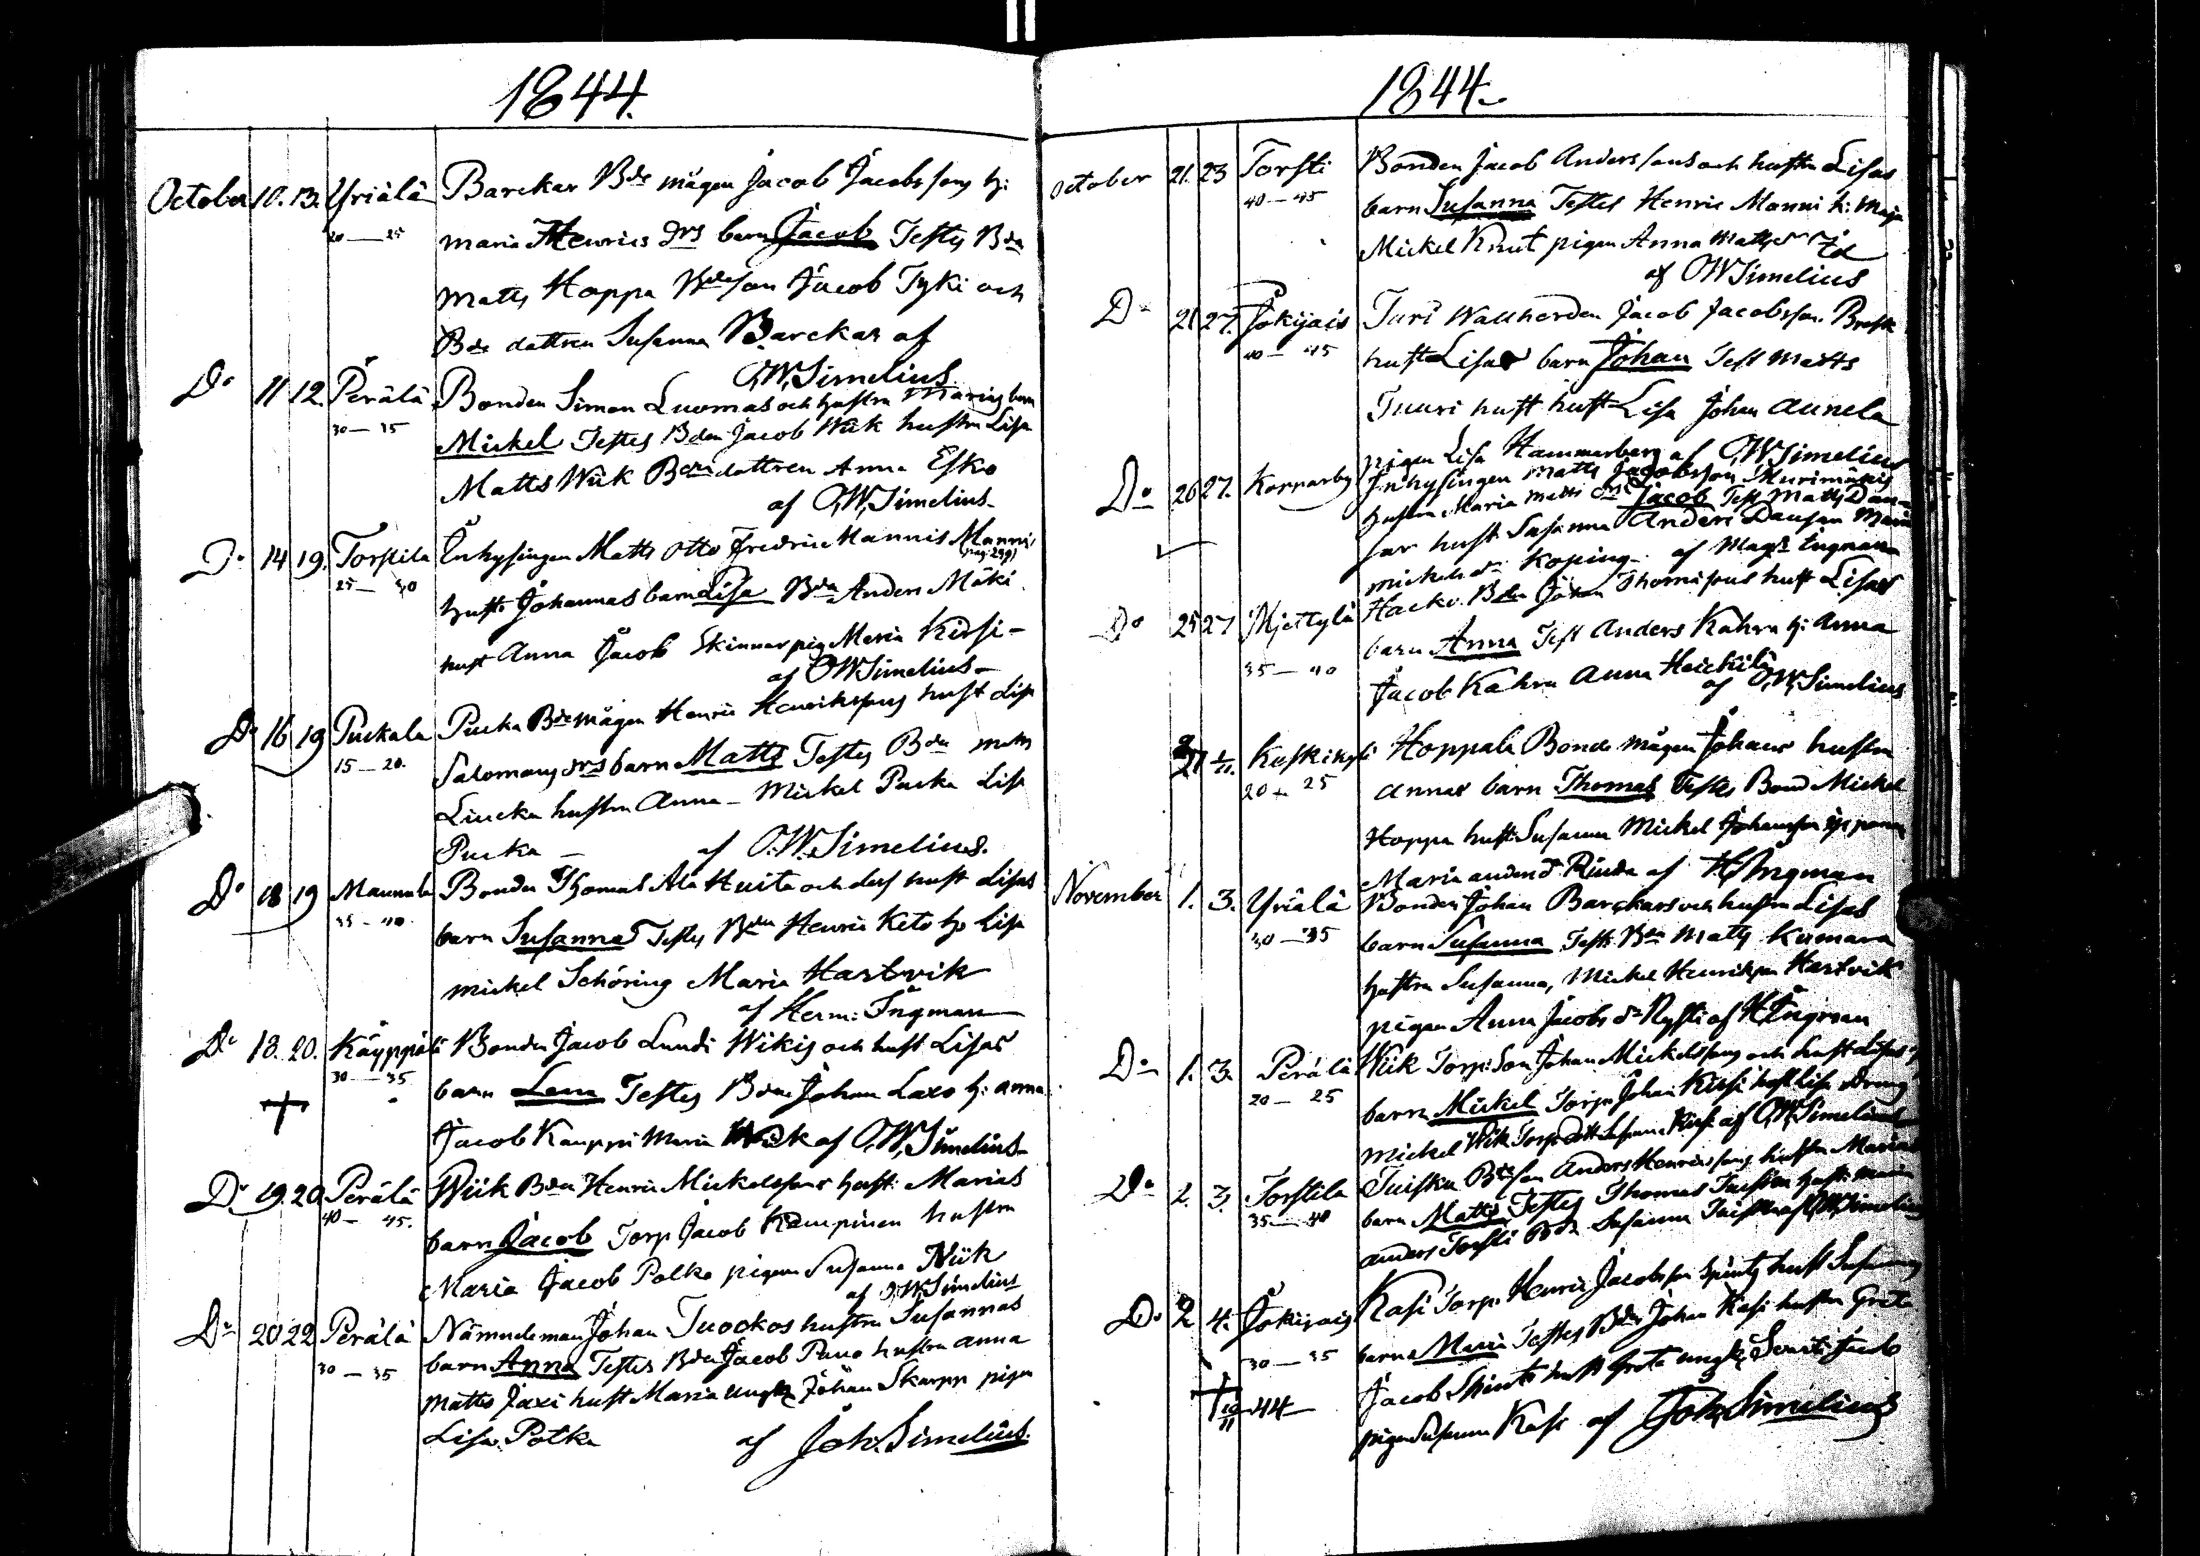 1844.
October 10. 13. Yriälä Barckar Bde mågen Jacob Jacobssons h:
20 — 25 maria Henrics drs barn Jacob Testes Bdn
Matts Hoppa Bdeson Jacob Tyki och
Bde dottren Susanna Barckar af
O,W,Simelius
Do 11 12. Perälä Bonden Simon Luomas och hustru Marias barn
30 — 35 Mickel Testes Bden Jacob Wiik hustru Lisa
Matts Wiik Bdedottren Anna Esko
af O,W,Simelius
Do 14 19. Torstila Inhysingen Matts Otto Fredric Mannis Mannis
(pag: 299)
25 — 30 hust Johannas barn Lisa Bdn Anders Mäki
hust Anna Jacob Skinnar pig Maria Kirsi
af OWSimelius
Do 16 19 Puckala Pucka Bdemågen Henric Henrikssons hust Lisa
15 — 20. Salomons drs barn Matts Testes Bdn Matts
Liucka hustru Anna — Mickel Pucka Lisa
Pucka — af O.W.Simelius.
Do 18 19 Mannula Bonden Thomas Ala Huita och dess hust Lisas
35 — 40. barn Susanna Testes Bdn Henric Keto h: Lisa
mickel Schöring Maria Hartvik
af Herm: Ingman
Do 18. 20. Käyppälä Bonden Jacob Lundi Wikis och hust Lisas
30 — 35 barn Lena Testes Bdn Johan Laxo h: anna
Jacob Kauppi Maria Wiik af O,W,Simelius
Do 19. 20 Perälä Wiik Bdn Henric Mickelssons hust: Marias
40 — 45. barn Jacob Torp Jacob Kampinen hustru
Maria Jacob Polko pigan Susanna Wiik
af O,W,Simelius
Do 20 22 Perälä Nämndeman Johan Tuockos hustru Susannas
30 — 35 barn Anna Testes Bdn Jacob Pavo hustru anna
Matts Jaxi hust Maria ungk Johan Skarpp pigan
Lisa Polka af Joh. Simelius.
1844.
October 21. 23 Torsti Bonden Jacob Anderssons och hustru Lisas
40 — 45 barn Susanna Testes Henric Manni h: Maja
Mickel Knut pigan Anna Mattsdr
af OWSimelius
Do 21 27. Jokijais Turi Wallherden Jacob Jacobsson
40 — 45 hust Lisas barn Johan Test Matts
Tuuri hust Lisa Johan Aunela
pigan Lisa Hammarberg af O,W,Simelius
Do 26 27. Korrarby Inhysingen Matts Jacobsson Murimäkis
hustru Maria Matts drs Jacob Test Matts Dan-
sar hust Susanna Anders Dansar Maria
Mickelsdr Koping. af Magr Ingman
Do 25 27 Mjettylä Hacko Bdn Johan Thomssons hust Lisas
35 — 40 barn Anna Test Anders Kahra h: Anna
Jacob Kahra Anna Heickilä
af O,W,Simelius
27 1/11. Kuskikylä Hoppala Bonde mågen Johans hustru
20 — 25 Annas barn Thomas Testes Bond Mickel
Hoppa hust: Susanna Mickel Johansson
Maria andersd. Rinda af HIngman
November 1. 3. Yriälä Bonden Johan Barckars och hustru Lisas
30 — 35 barn Susanna Test: Bdn Matts Kumara
hustru Susanna, Mickel Henriksson Hartvik
pigan Anna Jacobs dr Nysti af HIngman
Do 1. 3. Perälä Wiik Torp: Son Johan Mickelssons och hust Lisas
20 — 25 barn Mickel Torp: Johan Kirsi hust Lisa dreng
Mickel Wiik Torp: dott Susanna Kirsi af O,W,Simelius
Do 2. 3. Torstila Tuiskun Bdeson Anders Henrikssons hustru Marias
35 — 40 barn Matts Testes Thomas Tuiskun hust: Maria
anders Torsti Bdr Susanna Tuiskun af O,W,Simelius
Do 2 4. Jokijais Kasi Torp: Henric Jacobsson Spints hust Susannas
30 — 35 barn Maria Testes Bdn Johan Kasi hustru Greta
10/11 44 Jacob Spints hust Greta ungk: Jacob
pigan Susanna Kasi af Joh, Simelius